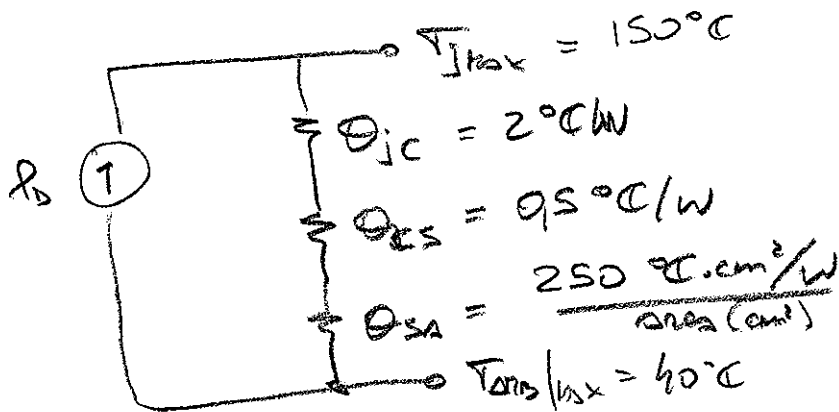 T_jmax = 150°C
θ_jc = 2°C/W
P_D ↑
θ_cs = 0,5°C/W
θ_SA = 250 °C.cm²/W / area (cm²)
T_amb|max = 40°C